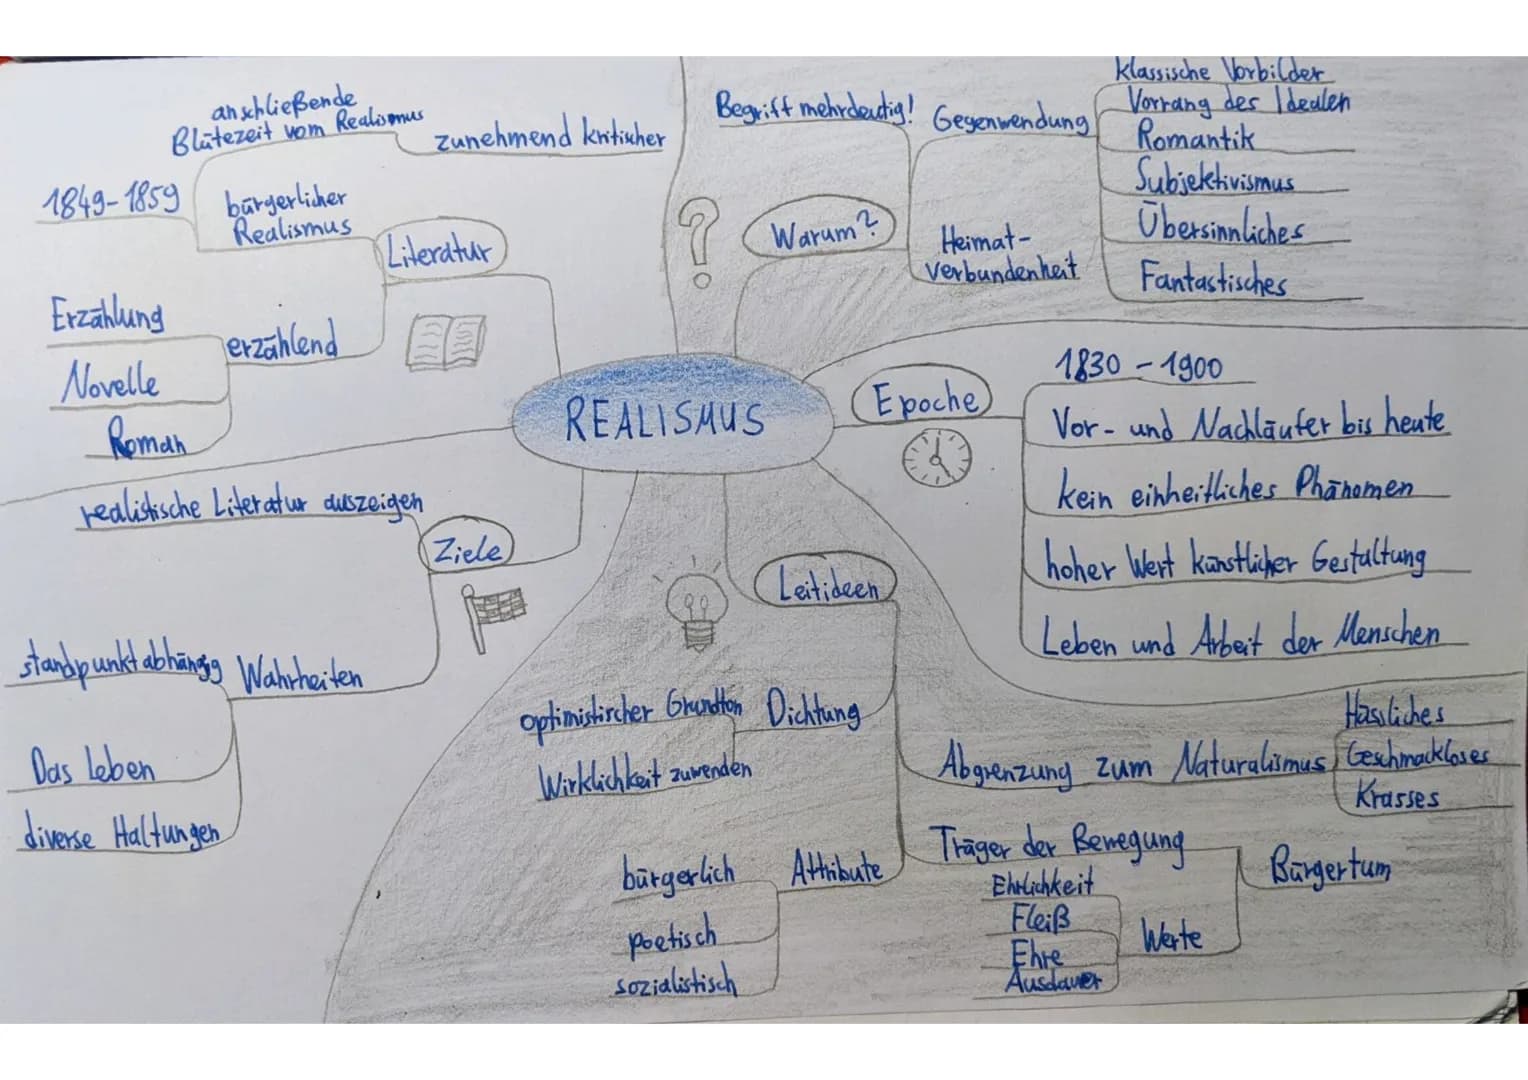 anschließende
Blütezeit vom Realismus
zunehmend kritischer
1849-1859
bürgerlicher
Realismus
Literatur
Erzählung
Novelle
Roman
erzählend
Begriff mehrdeutig!
Warum?
?
Gegenwendung
klassische Vorbilder
Vorrang des Idealen
Romantik
Subjektivismus
Übersinnliches
Fantastisches
Heimat-
verbundenheit
REALISMUS
Epoche
1830 - 1900
Vor- und Nachläufer bis heute
kein einheitliches Phänomen
hoher Wert künstlicher Gestaltung
Leben und Arbeit der Menschen
realistische Literatur auszeigen
Ziele
standpunktabhängig
Wahrheiten
Das Leben
diverse Haltungen
Leitideen
optimistischer Grundton
Dichtung
Wirklichkeit zuwenden
Abgrenzung zum Naturalismus
Hässliches
Geschmackloses
Krasses
bürgerlich
Attribute
poetisch
sozialistisch
Träger der Bewegung
Bürgertum
Werte
Ehrlichkeit
Fleiß
Ehre
Ausdauer